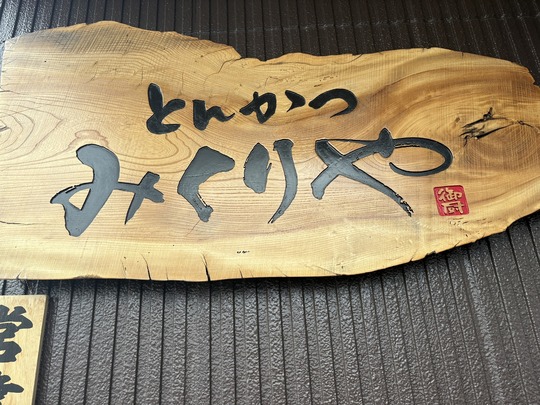 とんかつ
みくりや
御厨
営